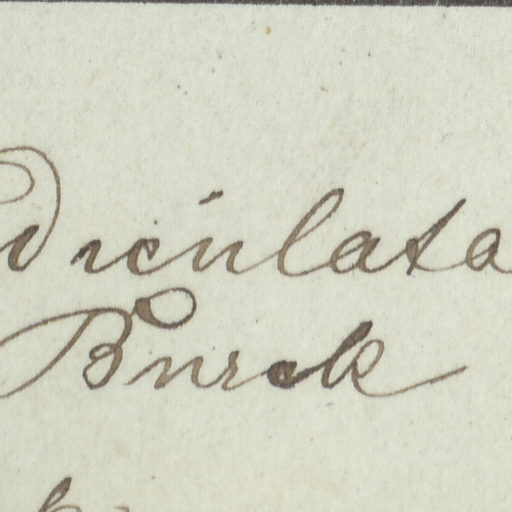 diculata
Burck